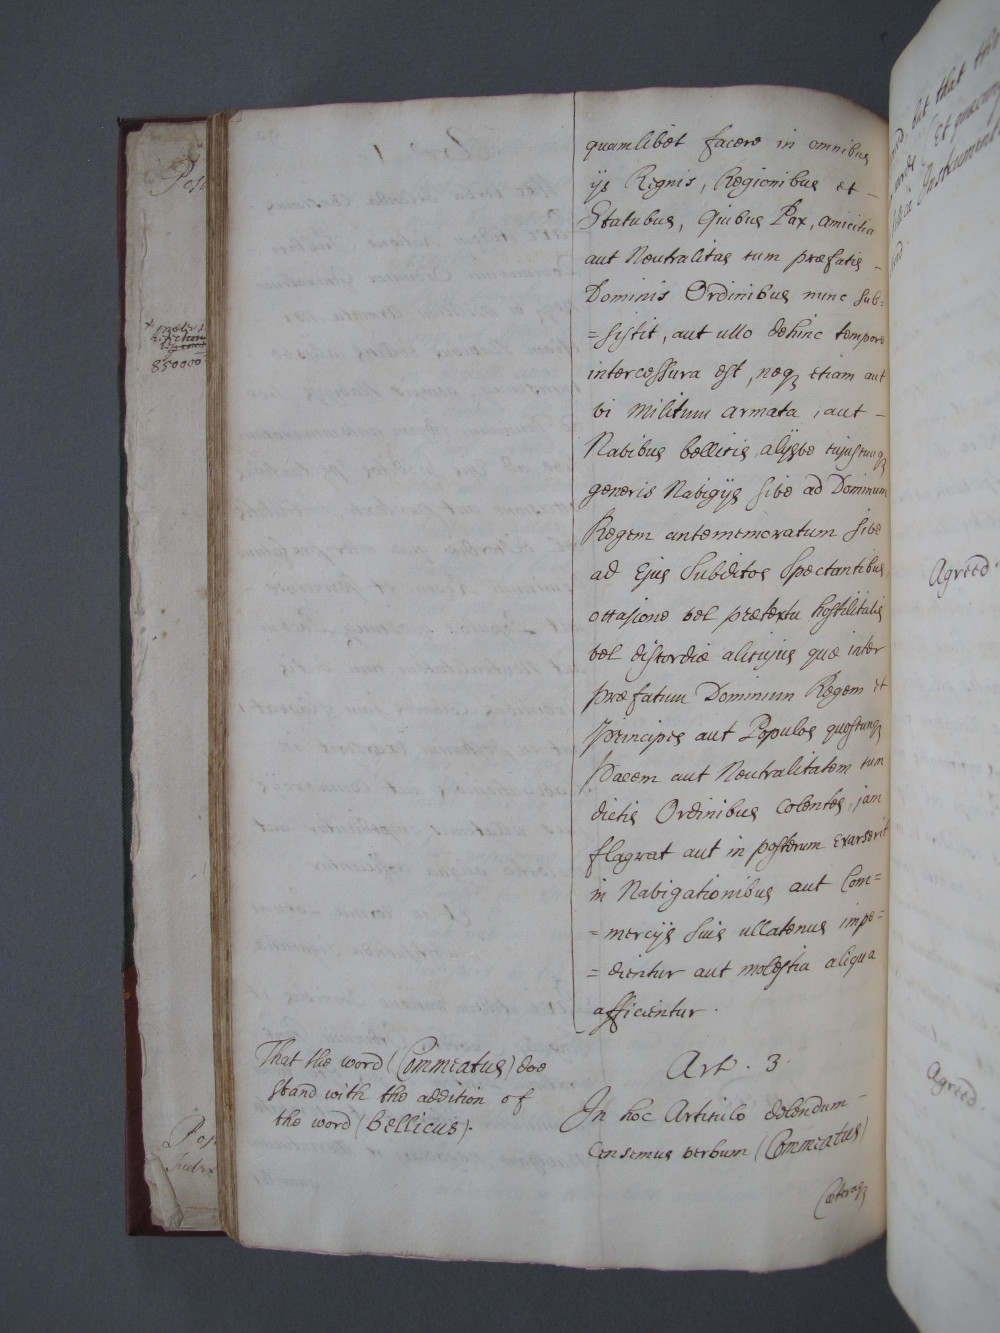 quamlibet facere in omnibus
ijs Regnis, Regionibus et -
Statubus, Quibus Pax, amicitia
aut Neutralitas cum præfatis -
Dominis Ordinibus nunc sub=
=sistit, aut ullo dehinc tempore
intercessura est, neqz etiam aut
vi Militum armata, aut -
Navibus bellicis, alijsve cujuscunqz
generis Navigijs sive ad Dominum
Regem antememoratum sive
ad Ejus Subditos Spectantibus,
occasione vel prætextu hostilitatis
vel discordiæ alicujus quæ inter
præfatum Dominum Regem et
Principes aut Populos quoscunqz
Pacem aut Neutralitatem cum
dictis Ordinibus Colentes, jam
flagrat aut in posterum Exarserit
in Navigationibus aut Com=
=mercijs suis ullatenus impe=
=dientur aut molestia aliqua
afficientur.
Art. 3.
In hoc Articulo delendum -
Censemus verbum (Commeatus)
Cæteraqz
That the word (Commeatus) doe
stand with the addition of
the word (bellicus).
Agreed.
Agreed.
Index
850000
but that the
Et quæcunqz
Instrument